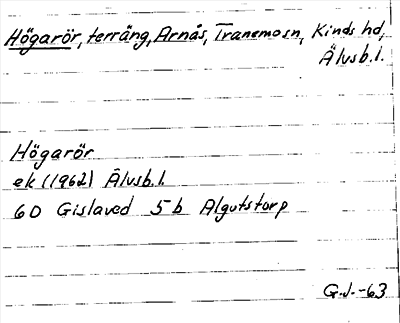 Högarör, terräng, Arnås, Tranemosn, Kinds hd,
Älvsb.l.
Högarör
ek (1962) Älvsb.l.
6D Gislaved 5b Algutstorp
G.J.-63